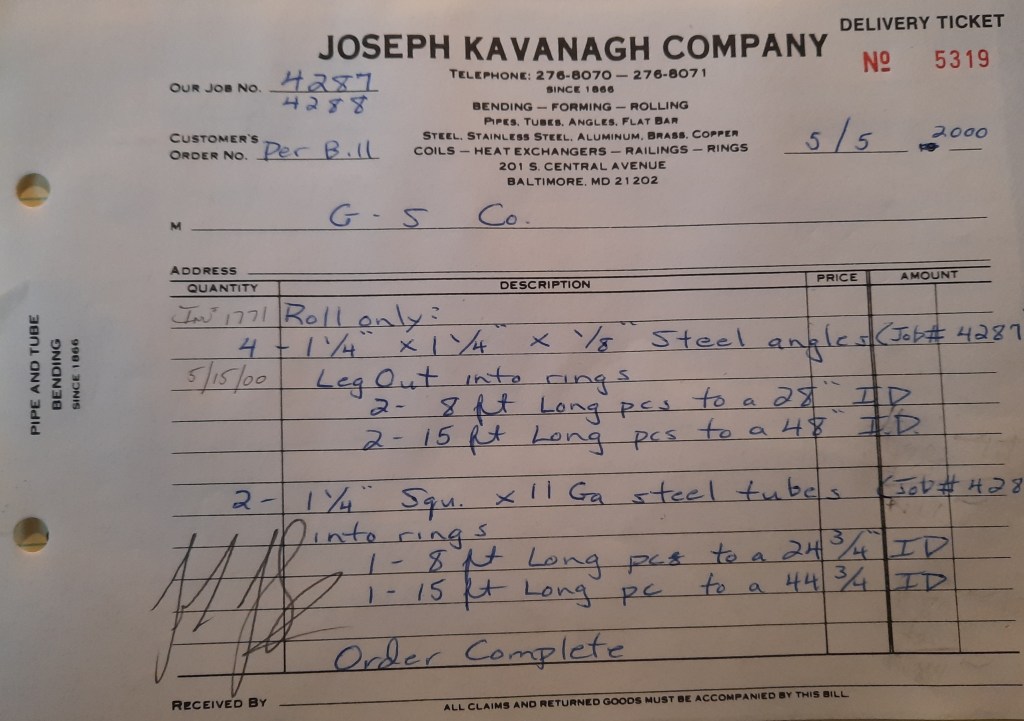 DELIVERY TICKET
JOSEPH KAVANAGH COMPANY
Nº 5319
TELEPHONE: 276-8070 — 276-8071
SINCE 1866
OUR JOB NO. 4287
4288
BENDING — FORMING — ROLLING
PIPES, TUBES, ANGLES, FLAT BAR
STEEL, STAINLESS STEEL, ALUMINUM, BRASS, COPPER
COILS — HEAT EXCHANGERS — RAILINGS — RINGS
201 S. CENTRAL AVENUE
BALTIMORE, MD 21202
CUSTOMER'S
ORDER NO. Per Bill
5/5 2000
M G-S Co.
ADDRESS
QUANTITY DESCRIPTION PRICE AMOUNT
Inv 1771 Roll only:
4 - 1 1/4" x 1 1/4" x 1/8" Steel angles (Job# 4287
5/15/00 Leg Out into rings
2- 8 ft Long pcs to a 28" ID
2- 15 ft Long pcs to a 48" I.D.
2- 1 1/4" Squ. x 11 Ga steel tubes (Job# 428
into rings
1- 8 ft Long pcs to a 24 3/4" ID
1- 15 ft Long pc to a 44 3/4 ID
Order Complete
RECEIVED BY
ALL CLAIMS AND RETURNED GOODS MUST BE ACCOMPANIED BY THIS BILL
PIPE AND TUBE
BENDING
SINCE 1866